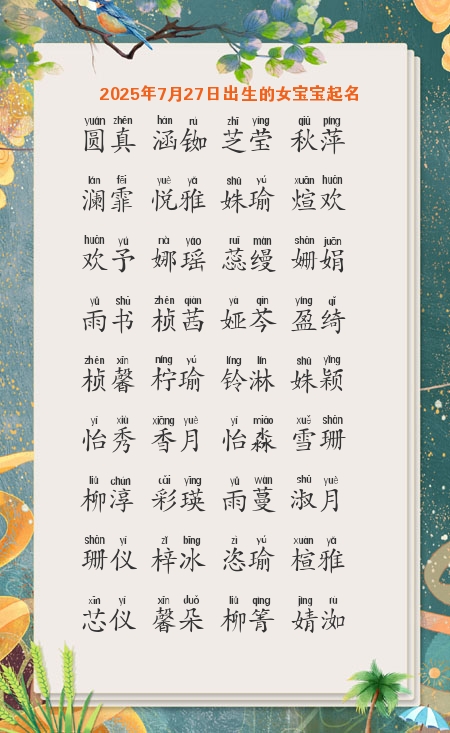 2025年7月27日出生的女宝宝起名
yuán zhēn hán rú zhī yíng qiū píng
圆真 涵铷 芝莹 秋萍
lán fēi yuè yǎ shū yú xuān huān
澜霏 悦雅 姝瑜 煊欢
huān yú nà yáo ruǐ màn shān juān
欢予 娜瑶 蕊缦 姗娟
yǔ shū zhēn qiàn yà qín yíng qǐ
雨书 桢茜 娅芩 盈绮
zhēn xīn níng yú líng lín shū yǐng
桢馨 柠瑜 铃淋 姝颖
yí xiù xiāng yuè yí miǎo xuě shān
怡秀 香月 怡淼 雪珊
liǔ chún cǎi yīng yǔ wàn shū yuè
柳淳 彩瑛 雨蔓 淑月
shān yí zǐ bīng zì yú xuān yǎ
珊仪 梓冰 恣瑜 楦雅
xīn yí xīn duǒ liǔ qìng jìng rù
芯仪 馨朵 柳箐 婧洳